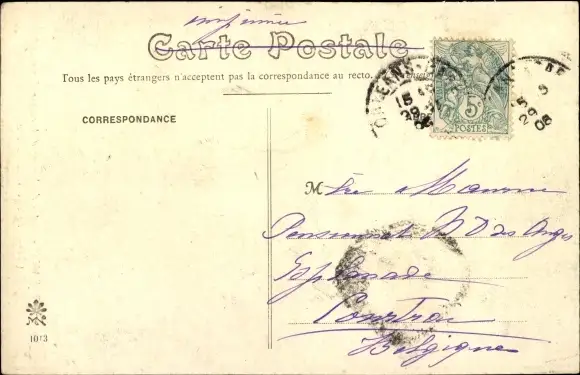 imprimée
Carte Postale
Tous les pays étrangers n'acceptent pas la correspondance au recto.
CORRESPONDANCE
5c
POSTES
15
29
05
M
Pensionnat N D des Anges
Esplanade
Courtrai
Belgique
1013